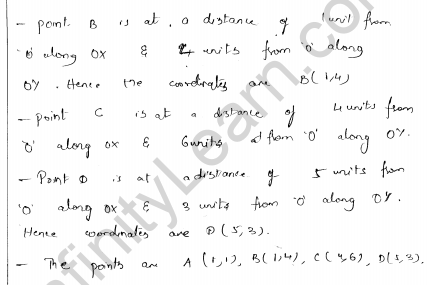 - point B is at a distance of 1 unit from
'O' along OX & 4 units from 'O' along
OY. Hence the coordinates are B(1,4)
- point C is at a distance of 4 units from
'O' along OX & 6 units from 'O' along OY.
- Point D is at a distance of 5 units from
'O' along OX & 3 units from 'O' along OY.
Hence coordinates are D(5,3).
- The points are A(1,1), B(1,4), C(4,6), D(5,3).
InfinityLearn.com